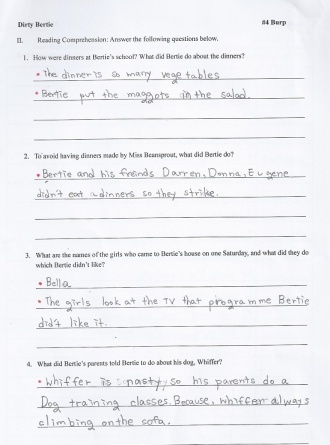 Dirty Bertie #4 Burp
II. Reading Comprehension: Answer the following questions below.
1. How were dinners at Bertie's school? What did Bertie do about the dinners?
• The dinner is so many vegetables
• Bertie put the maggots in the salad.
2. To avoid having dinners made by Miss Beansprout, what did Bertie do?
• Bertie and his freinds Darren, Donna, Eugene
didn't eat a dinners so they strike.
3. What are the names of the girls who came to Bertie's house on one Saturday, and what did they do
which Bertie didn't like?
• Bella
• The girls look at the TV that programme Bertie
didn't like it.
4. What did Bertie's parents told Bertie to do about his dog, Whiffer?
• Whiffer is nasty, so his parents do a
Dog training classes. Because, Whiffer always
climbing on the sofa.